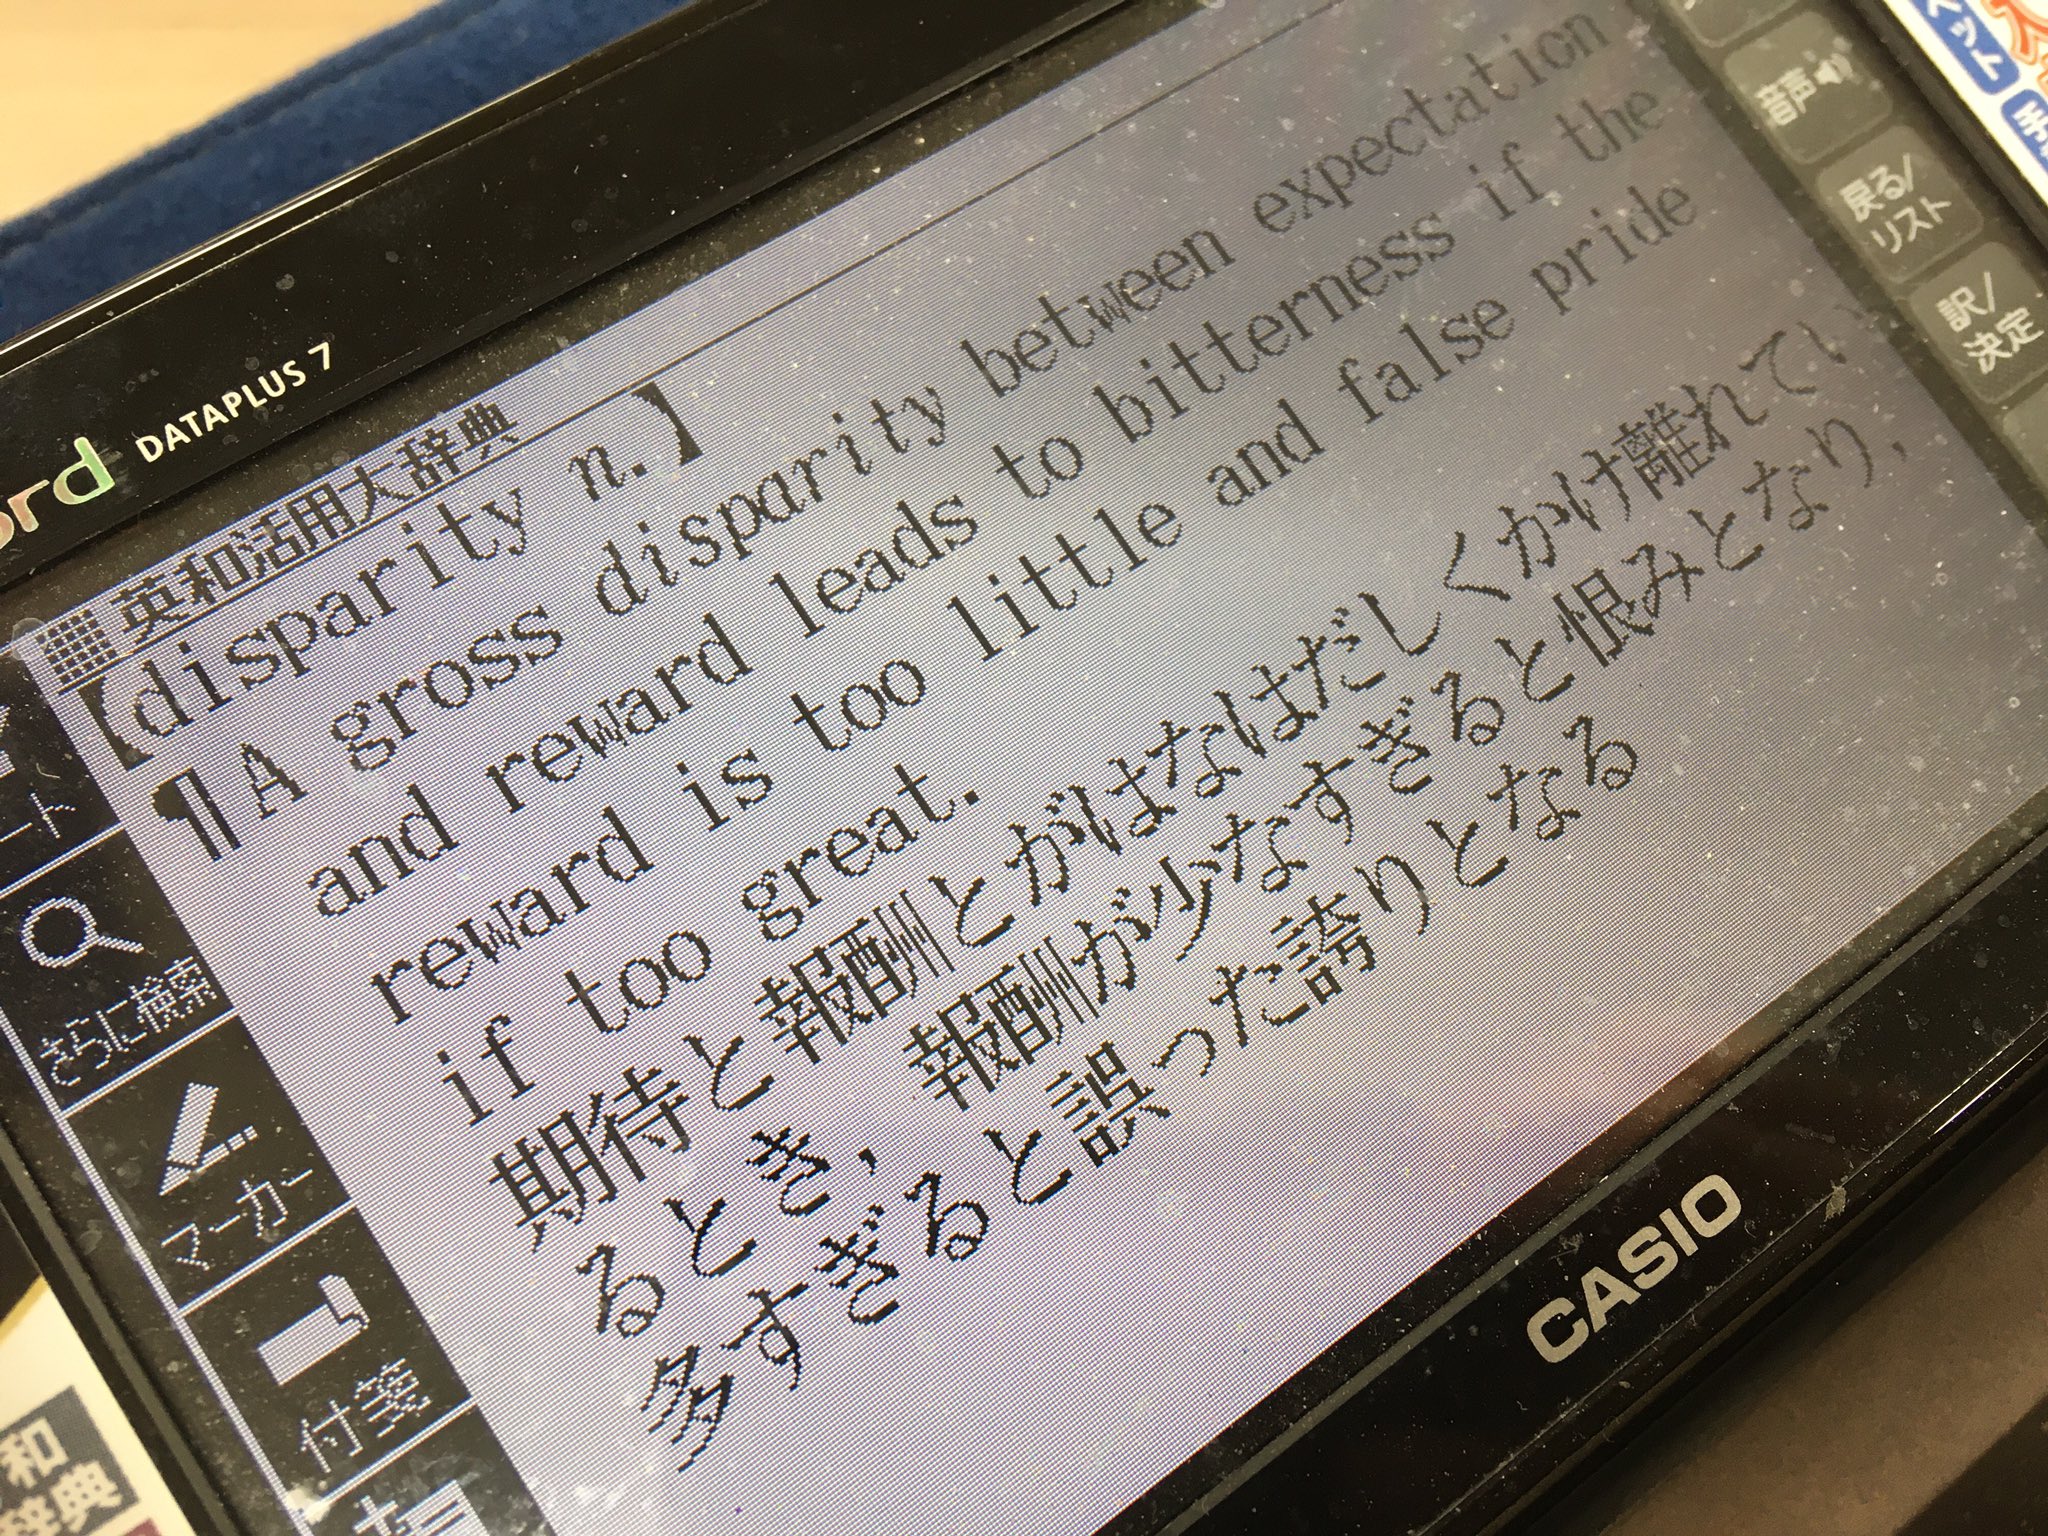 DATAPLUS 7
英和活用大辞典
【disparity n.】
¶A gross disparity between expectation
and reward leads to bitterness if the
reward is too little and false pride
if too great.
期待と報酬とがはなはだしくかけ離れてい
るとき, 報酬が少なすぎると恨みとなり,
多すぎると誤った誇りとなる
さらに検索
マーカー
付箋
音声
戻る/
リスト
訳/
決定
CASIO